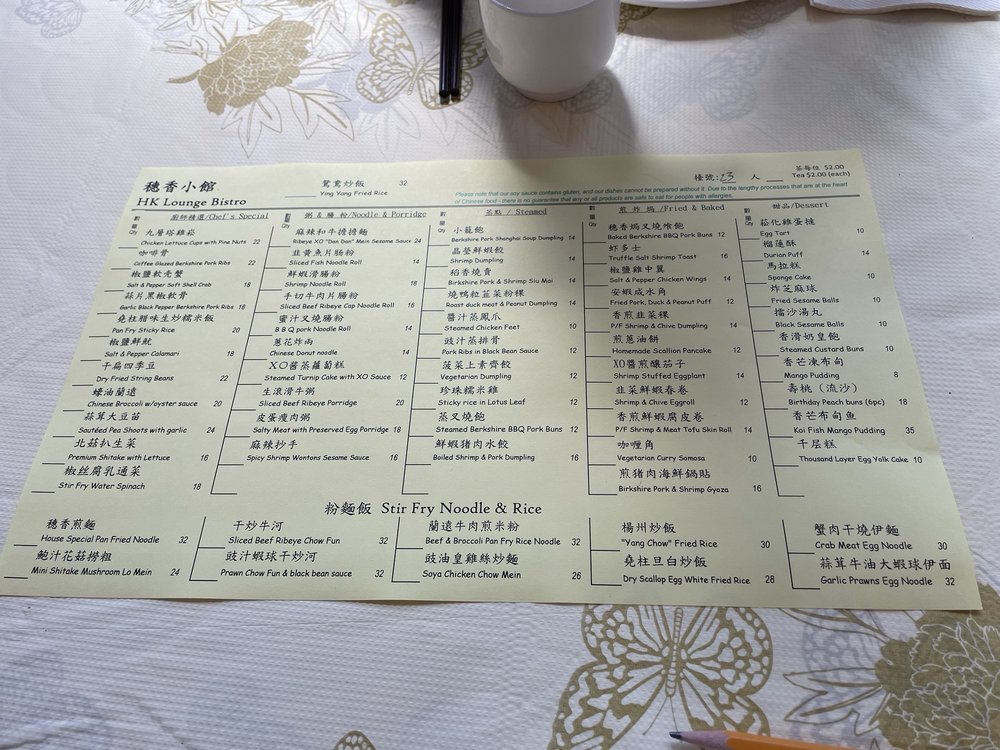 穗香小館
HK Lounge Bistro
鴛鴦炒飯 32
Ying Yang Fried Rice
檯號: 23 人
茶每位 $2.00
Tea $2.00 (each)
Please note that our soy sauce contains gluten, and our dishes cannot be prepared without it. Due to the lengthy processes that are at the heart
of Chinese food - there is no guarantee that any or all products are safe to eat for people with allergies.
數量 Qty
廚師精選/Chef's Special
九層塔雞崧
Chicken Lettuce Cups with Pine Nuts 22
咖啡骨
Coffee Glazed Berkshire Pork Ribs 22
椒鹽軟壳蟹
Salt & Pepper Soft Shell Crab 18
蒜片黑椒軟骨
Garlic Black Pepper Berkshire Pork Ribs 18
堯柱腊味生炒糯米飯
Pan Fry Sticky Rice 20
椒鹽鮮魷
Salt & Pepper Calamari 18
干扁四季豆
Dry Fried String Beans 22
蠔油蘭遠
Chinese Broccoli w/oyster sauce 20
蒜茸大豆苗
Sautéed Pea Shoots with garlic 24
北菇扒生菜
Premium Shitake with Lettuce 16
椒丝腐乳通菜
Stir Fry Water Spinach 18
數量 Qty
粥 & 腸 粉/Noodle & Porridge
麻辣和牛擔擔麵
Ribeye XO "Dan Dan" Mein Sesame Sauce 24
韮黄魚片腸粉
Sliced Fish Noodle Roll 14
鮮蝦滑腸粉
Shrimp Noodle Roll 18
手切牛肉片腸粉
Sliced Beef Ribeye Cap Noodle Roll 16
蜜汁叉燒腸粉
B B Q pork Noodle Roll 14
蔥花炸両
Chinese Donut noodle 14
XO醬蒸蘿蔔糕
Steamed Turnip Cake with XO Sauce 12
生滾滑牛粥
Sliced Beef Ribeye Porridge 20
皮蛋瘦肉粥
Salty Meat with Preserved Egg Porridge 18
麻辣抄手
Spicy Shrimp Wontons Sesame Sauce 16
數量 Qty
茶點 / Steamed
小籠飽
Berkshire Pork Shanghai Soup Dumpling 14
晶瑩鮮蝦餃
Shrimp Dumpling 14
稻香燒賣
Birkshire Pork & Shrimp Siu Mai 14
燒鴨粒韮菜粉粿
Roast duck meat & Peanut Dumpling 14
醬汁蒸鳳爪
Steamed Chicken Feet 10
豉汁蒸排骨
Pork Ribs in Black Bean Sauce 12
菠菜上素齊餃
Vegetarian Dumpling 12
珍珠糯米雞
Sticky rice in Lotus Leaf 12
蒸叉燒飽
Steamed Berkshire BBQ Pork Buns 12
鮮蝦猪肉水餃
Boiled Shrimp & Pork Dumpling 16
數量 Qty
煎 炸 焗 /Fried & Baked
穗香焗叉燒飡飽
Baked Berkshire BBQ Pork Buns 12
虾多士
Truffle Salt Shrimp Toast 16
椒鹽雞中翼
Salt & Pepper Chicken Wings 14
安蝦咸水角
Fried Pork, Duck & Peanut Puff 12
香煎韭菜粿
P/F Shrimp & Chive Dumpling 14
煎蔥油餅
Homemade Scallion Pancake 12
XO醬煎釀茄子
Shrimp Stuffed Eggplant 14
韭菜鮮蝦春卷
Shrimp & Chive Eggroll 12
香煎鮮蝦腐皮卷
P/F Shrimp & Meat Tofu Skin Roll 14
咖喱角
Vegetarian Curry Somosa 10
煎猪肉海鮮鍋貼
Birkshire Pork & Shrimp Gyoza 16
數量 Qty
甜品/Dessert
崧化雞蛋撻
Egg Tart 10
榴蓮酥
Durian Puff 14
馬拉糕
Sponge Cake 10
炸芝麻球
Fried Sesame Balls 10
擂沙湯丸
Black Sesame Balls 10
香滑奶皇飽
Steamed Custard Buns 10
香芒凍布甸
Mango Pudding 8
壽桃 (流沙)
Birthday Peach buns (6pc) 18
香芒布甸魚
Koi Fish Mango Pudding 35
千层糕
Thousand Layer Egg Yolk Cake 10
粉麵飯 Stir Fry Noodle & Rice
穗香煎麵
House Special Pan Fried Noodle 32
鮑汁花菇撈粗
Mini Shitake Mushroom Lo Mein 24
干炒牛河
Sliced Beef Ribeye Chow Fun 32
豉汁蝦球干炒河
Prawn Chow Fun & black bean sauce 32
蘭遠牛肉煎米粉
Beef & Broccoli Pan Fry Rice Noodle 32
豉油皇雞絲炒麵
Soya Chicken Chow Mein 26
楊州炒飯
"Yang Chow" Fried Rice 30
堯柱旦白炒飯
Dry Scallop Egg White Fried Rice 28
蟹肉干燒伊麵
Crab Meat Egg Noodle 30
蒜茸牛油大蝦球伊面
Garlic Prawns Egg Noodle 32